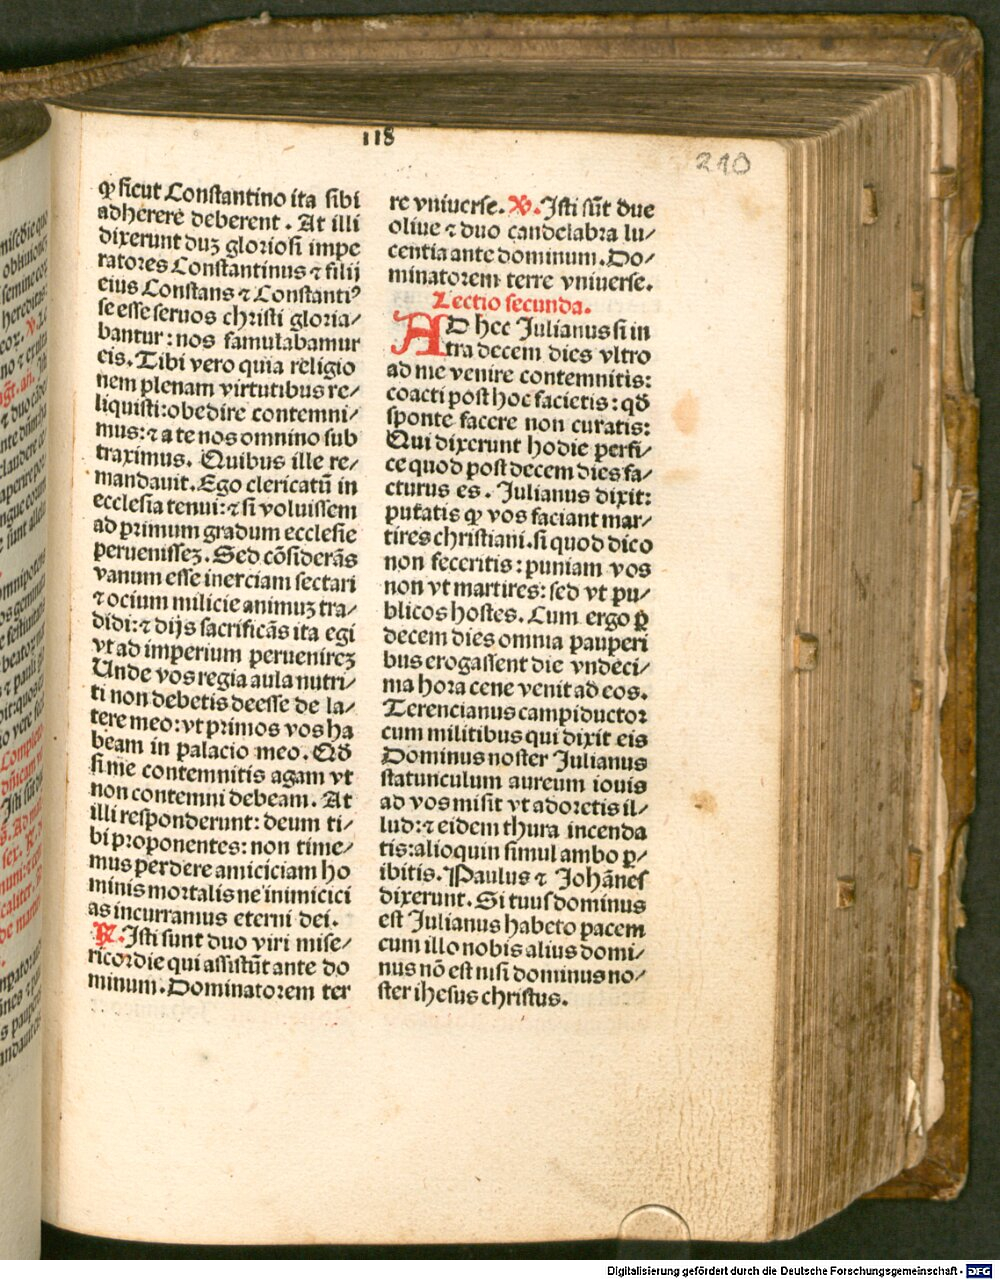 118
210
ꝙ sicut Constantino ita sibi
adherere deberent. At illi
dixerunt duꝫ gloriosi impe
ratores Constantinus ⁊ filij
eius Constans ⁊ Constantiꝰ
se esse seruos christi gloria/
bantur: nos famulabamur
eis. Tibi vero quia religio
nem plenam virtutibus re/
liquisti: obedire contemni/
mus: ⁊ a te nos omnino sub
traximus. Quibus ille re/
mandauit. Ego clericatū in
ecclesia tenui: ⁊ si voluissem
ad primum gradum ecclesie
peruenisseꝫ. Sed cōsiderās
vanum esse inerciam sectari
⁊ ocium milicie animuꝫ tra/
didi: ⁊ dijs sacrificās ita egi
vt ad imperium peruenireꝫ
Unde vos regia aula nutri/
ti non debetis deesse de la/
tere meo: vt primos vos ha
beam in palacio meo. Qd̄
si me contemnitis agam vt
non contemni debeam. At
illi responderunt: deum ti/
bi proponentes: non time/
mus perdere amiciciam ho
minis mortalis ne inimicici
as incurramus eterni dei.
℟. Isti sunt duo viri mise/
ricordie qui assistūt ante do
minum. Dominatorem ter
re vniuerse. ℣. Isti sūt due
oliue ⁊ duo candelabra lu/
centia ante dominum. Do/
minatorem terre vniuerse.
Lectio secunda.
AD hec Julianus si in
tra decem dies vltro
ad me venire contemnitis:
coacti post hoc facietis: qd̄
sponte facere non curatis:
Qui dixerunt hodie perfi/
ce quod post decem dies fa/
cturus es. Julianus dixit:
putatis ꝙ vos faciant mar/
tires christiani. si quod dico
non feceritis: puniam vos
non vt martires: sed vt pu/
blicos hostes. Cum ergo ꝑ
decem dies omnia pauperi
bus erogassent die vndeci/
ma hora cene venit ad eos.
Terencianus campiductor
cum militibus qui dixit eis
Dominus noster Julianus
statunculum aureum iouis
ad vos misit vt adoretis il/
lud: ⁊ eidem thura incenda
tis: alioquin simul ambo ꝑ/
ibitis. Paulus ⁊ Johānes
dixerunt. Si tuus dominus
est Julianus habeto pacem
cum illo nobis alius domi/
nus nō est nisi dominus no/
ster ihesus christus.
Digitalisierung gefördert durch die Deutsche Forschungsgemeinschaft - DFG